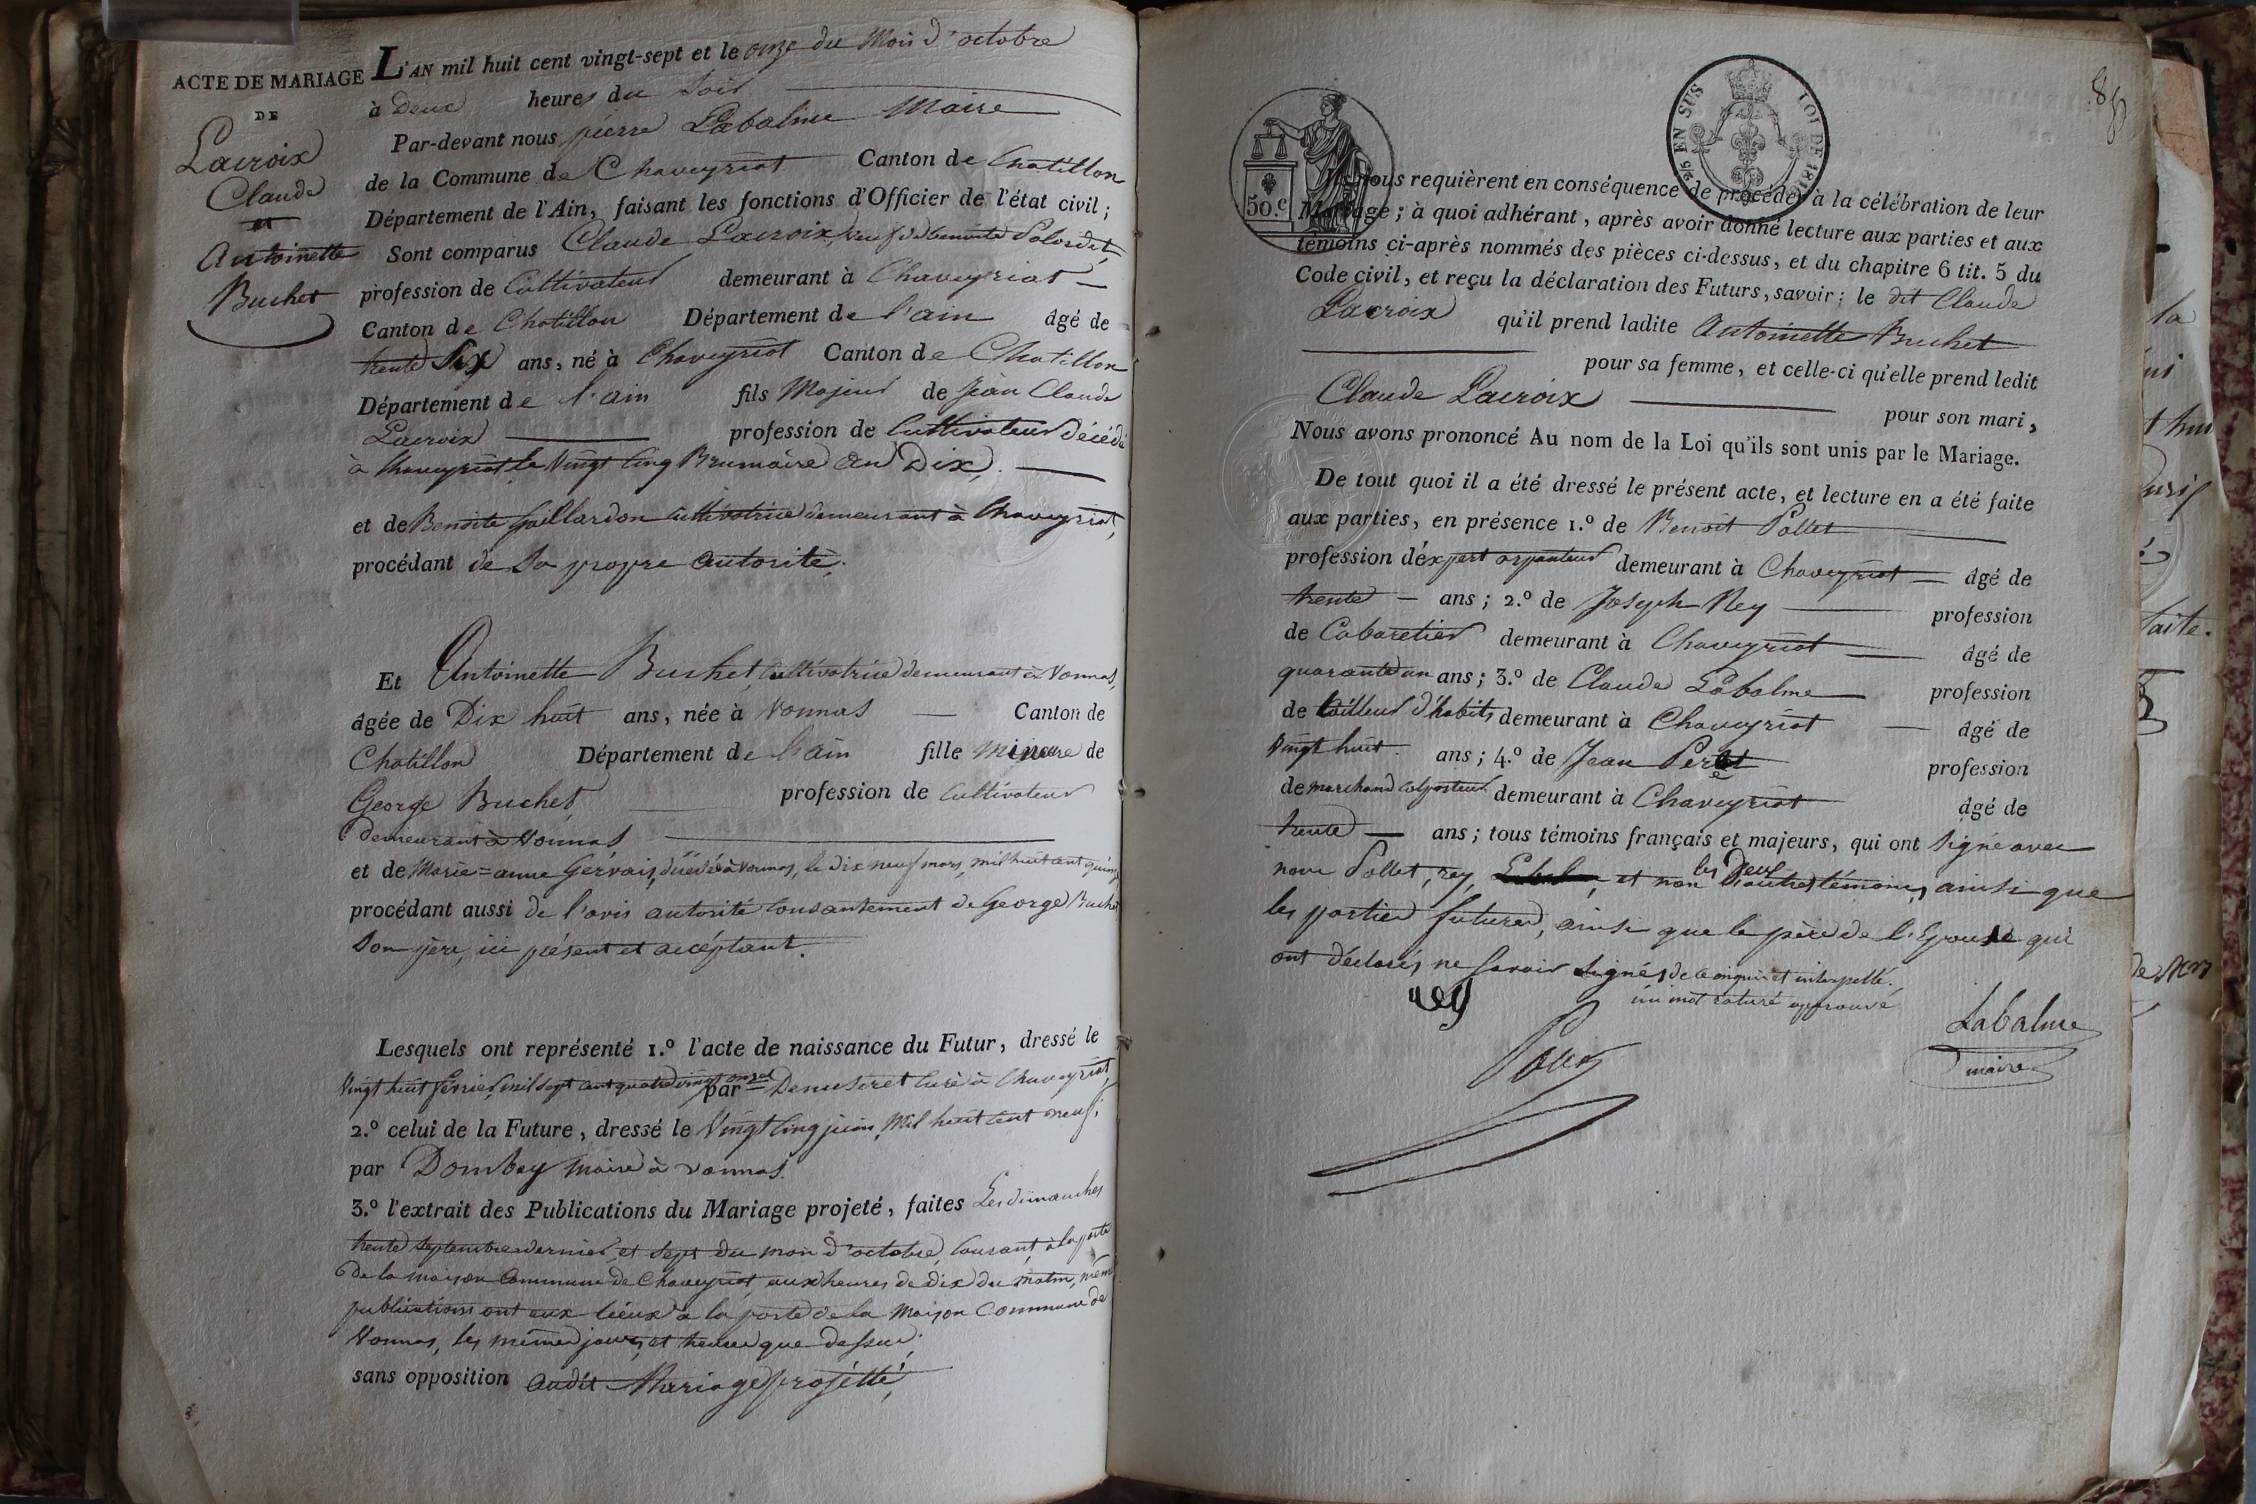 ACTE DE MARIAGE
DE
Lacroix
Claude
et
Antoinette
Buchet
L'AN mil huit cent vingt-sept et le onze du mois d'octobre
à Deux heures du Soir
Par-devant nous pierre Labalme Maire
de la Commune de Chaveyriat Canton de Chatillon
Département de l'Ain, faisant les fonctions d'Officier de l'état civil;
Sont comparus Claude Lacroix, veuf de benoite
profession de Cultivateur demeurant à Chaveyriat
Canton de Chatillon Département de l'ain âgé de
trente Six ans, né à Chaveyriat Canton de Chatillon
Département de l'ain fils Majeur de Jean Claude
Lacroix profession de Cultivateur décédé
à Chaveyriat le Vingt Cinq Brumaire an Dix,
et de Benoite Gaillardon Cultivatrice demeurant à Chaveyriat,
procédant de Sa propre autorité;
Et Antoinette Buchet, Cultivatrice demeurant à Vonnas,
âgée de Dix huit ans, née à Vonnas Canton de
Chatillon Département de l'ain fille mineure de
George Buchet profession de Cultivateur
demeurant à Vonnas
et de Marie=anne Gervais, décédée à Vonnas, le dix neuf mars, mil huit cent quinze
procédant aussi de l'avis autorité consantement de George Buchet
Son père, ici présent et accéptant.
Lesquels ont représenté 1.º l'acte de naissance du Futur, dressé le
Vingt huit février, mil sept cent quatre vingt onze par Curé à Chaveyriat,
2.º celui de la Future, dressé le Vingt Cinq juin, Mil huit cent neuf,
par Dombey Maire à Vonnas.
3.º l'extrait des Publications du Mariage projeté, faites Les dimanches
trente septembre dernier, et sept du mois d'octobre, Courant, à la porte
de la maison Commune de Chaveyriat, aux heures de dix du matin, même
publications ont eux lieux à la porte de la Maison Commune de
Vonnas, les mêmes jours, et heures que dessus;
sans opposition audit Mariage projetté,
85
2/5 EN SUS
LOI DE 181
50.c
Ils nous requièrent en conséquence de procéder à la célébration de leur
Mariage; à quoi adhérant, après avoir donné lecture aux parties et aux
témoins ci-après nommés des pièces ci-dessus, et du chapitre 6 tit. 5 du
Code civil, et reçu la déclaration des Futurs, savoir: le dit Claude
Lacroix qu'il prend ladite Antoinette Buchet
pour sa femme, et celle-ci qu'elle prend ledit
Claude Lacroix pour son mari,
Nous avons prononcé Au nom de la Loi qu'ils sont unis par le Mariage.
De tout quoi il a été dressé le présent acte, et lecture en a été faite
aux parties, en présence 1.º de Benoit Pollet
profession d'éxpert arpenteur demeurant à Chaveyriat âgé de
trente ans; 2.º de Joseph Rey profession
de Cabaretier demeurant à Chaveyriat âgé de
quarante un ans; 3.º de Claude Labalme profession
de tailleur d'habits demeurant à Chaveyriat âgé de
Vingt huit ans; 4.º de Jean profession
de marchand colporteur demeurant à Chaveyriat âgé de
trente ans; tous témoins français et majeurs, qui ont Signé avec
nous Pollet, rey, et non les Deux autres témoins, ainsi que
les parties futures, ainsi que le père de l'Epouse qui
ont déclarés ne Savoir Signés de ce enquis et interpellé.
un mot raturé approuvé
rey
Labalme
Pollet
maire